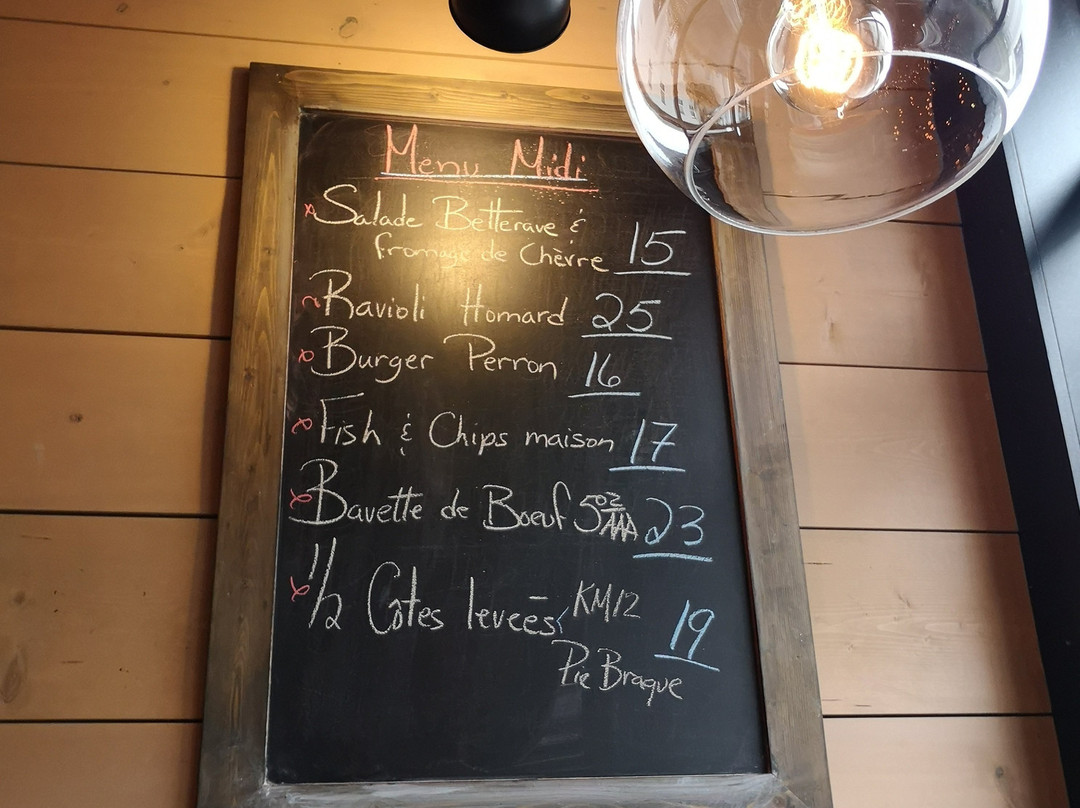 Menu Midi
Salade Betterave &
fromage de Chèvre 15
Ravioli Homard 25
Burger Perron 16
Fish & Chips maison 17
Bavette de Boeuf 5oz AAA 23
1/2 Côtes levées KM12 19
Pie Braque